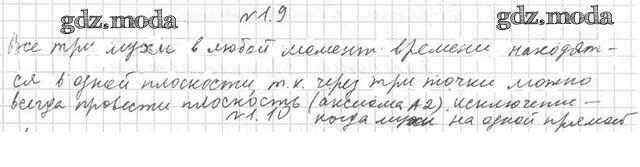 №1.9
gdz.moda gdz.moda
Все три мухи в любой момент времени находят-
ся в одной плоскости, т.к. через три точки можно
всегда провести плоскость (аксиома А2). Исключение –
№1.10 когда мухи на одной прямой